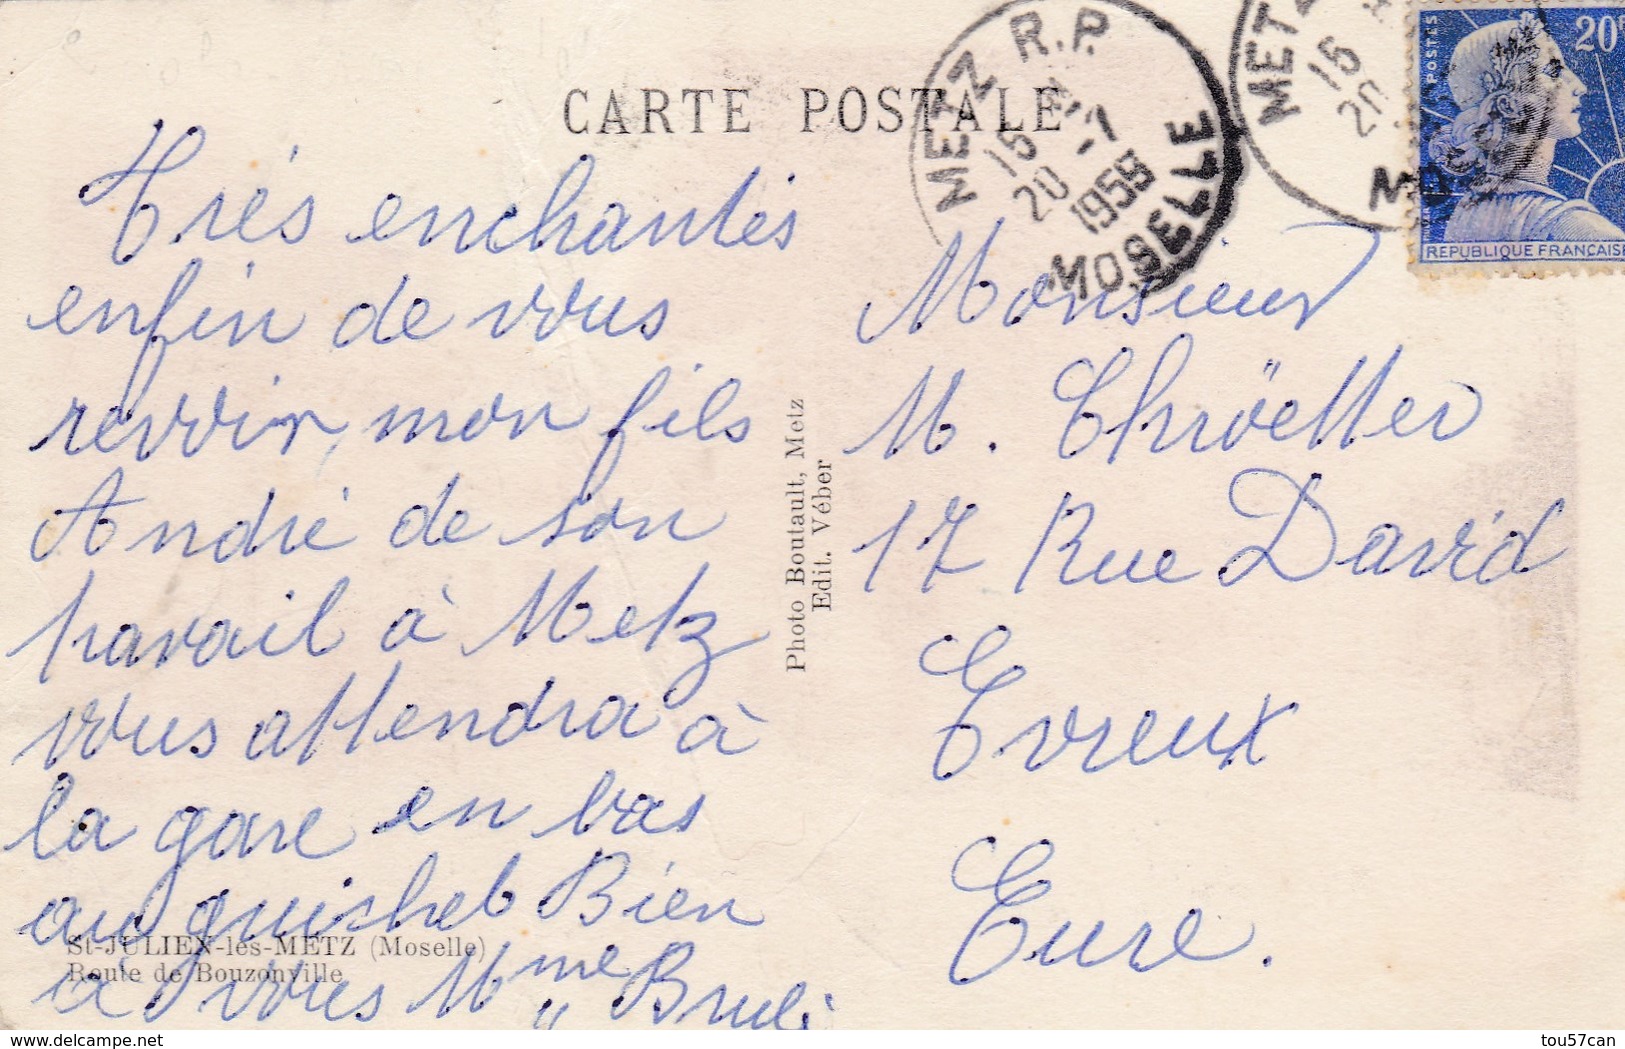 CARTE POSTALE
METZ R.P.
15 H
20 -7
1958
MOSELLE
METZ
15
20
MOSELLE
POSTES
20F
REPUBLIQUE FRANÇAISE
Très enchantés
enfin de vous
revoir, mon fils
André de son
travail à Metz
vous attendra à
la gare en bas
au guichet Bien
à Vous Mme
Photo Boutault, Metz
Edit. Véber
Monsieur
M. Chröetter
17 Rue David
Evreux
Eure.
St-JULIEN-lès-METZ (Moselle)
Route de Bouzonville
tou57can